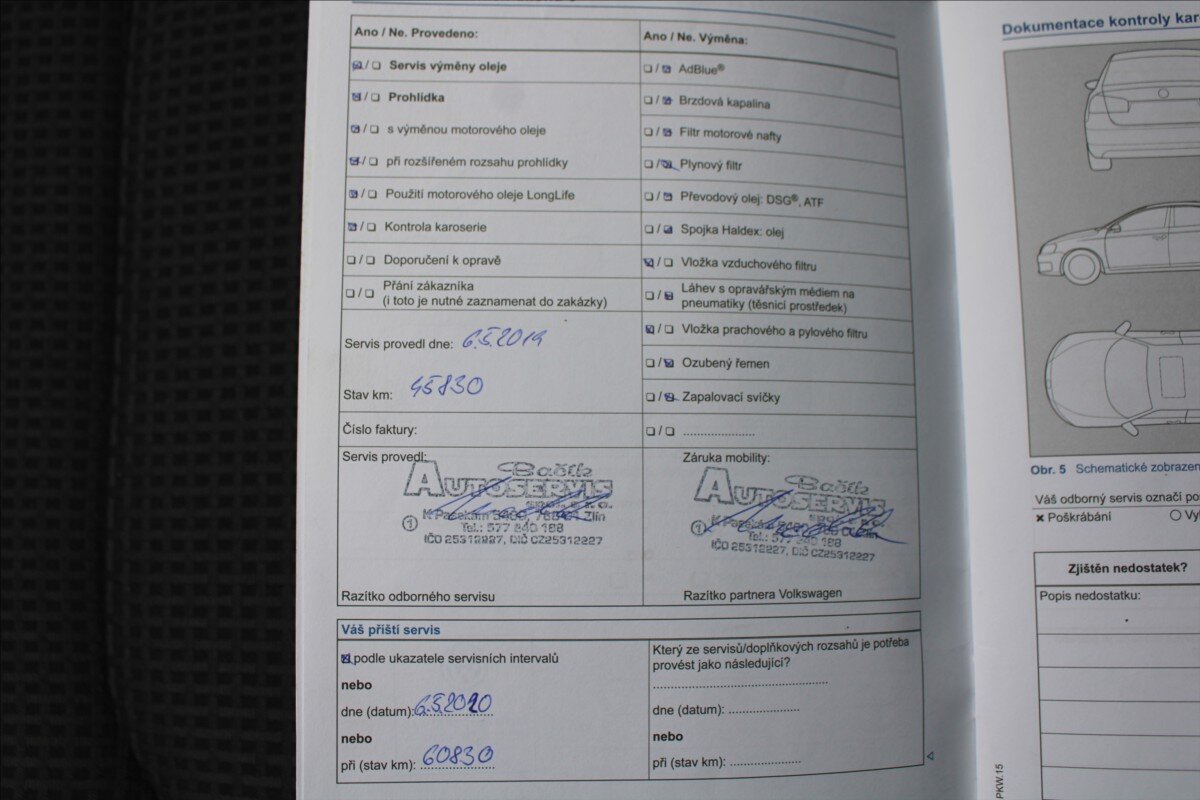 Ano / Ne. Provedeno:
Servis výměny oleje
Prohlídka
s výměnou motorového oleje
při rozšířeném rozsahu prohlídky
Použití motorového oleje LongLife
Kontrola karoserie
Doporučení k opravě
Přání zákazníka
(i toto je nutné zaznamenat do zakázky)
Servis provedl dne: 6.5.2019
Stav km: 45830
Číslo faktury:
Servis provedl:
Bačík
AUTOSERVIS
Tel.: 577 240 188
IČO 25312227, DIČ CZ25312227
Razítko odborného servisu
Ano / Ne. Výměna:
AdBlue®
Brzdová kapalina
Filtr motorové nafty
Plynový filtr
Převodový olej: DSG®, ATF
Spojka Haldex: olej
Vložka vzduchového filtru
Láhev s opravářským médiem na
pneumatiky (těsnicí prostředek)
Vložka prachového a pylového filtru
Ozubený řemen
Zapalovací svíčky
Záruka mobility:
Bačík
AUTOSERVIS
Tel.: 577 240 188
IČO 25312227, DIČ CZ25312227
Razítko partnera Volkswagen
Váš příští servis
podle ukazatele servisních intervalů
nebo
dne (datum): 6.5.2020
nebo
při (stav km): 60830
Který ze servisů/doplňkových rozsahů je potřeba
provést jako následující?
dne (datum):
nebo
při (stav km):
PKW.15
Dokumentace kontroly
Obr. 5 Schematické
Váš odborný servis označí
Poškrábání
Zjištěn nedostatek?
Popis nedostatku: